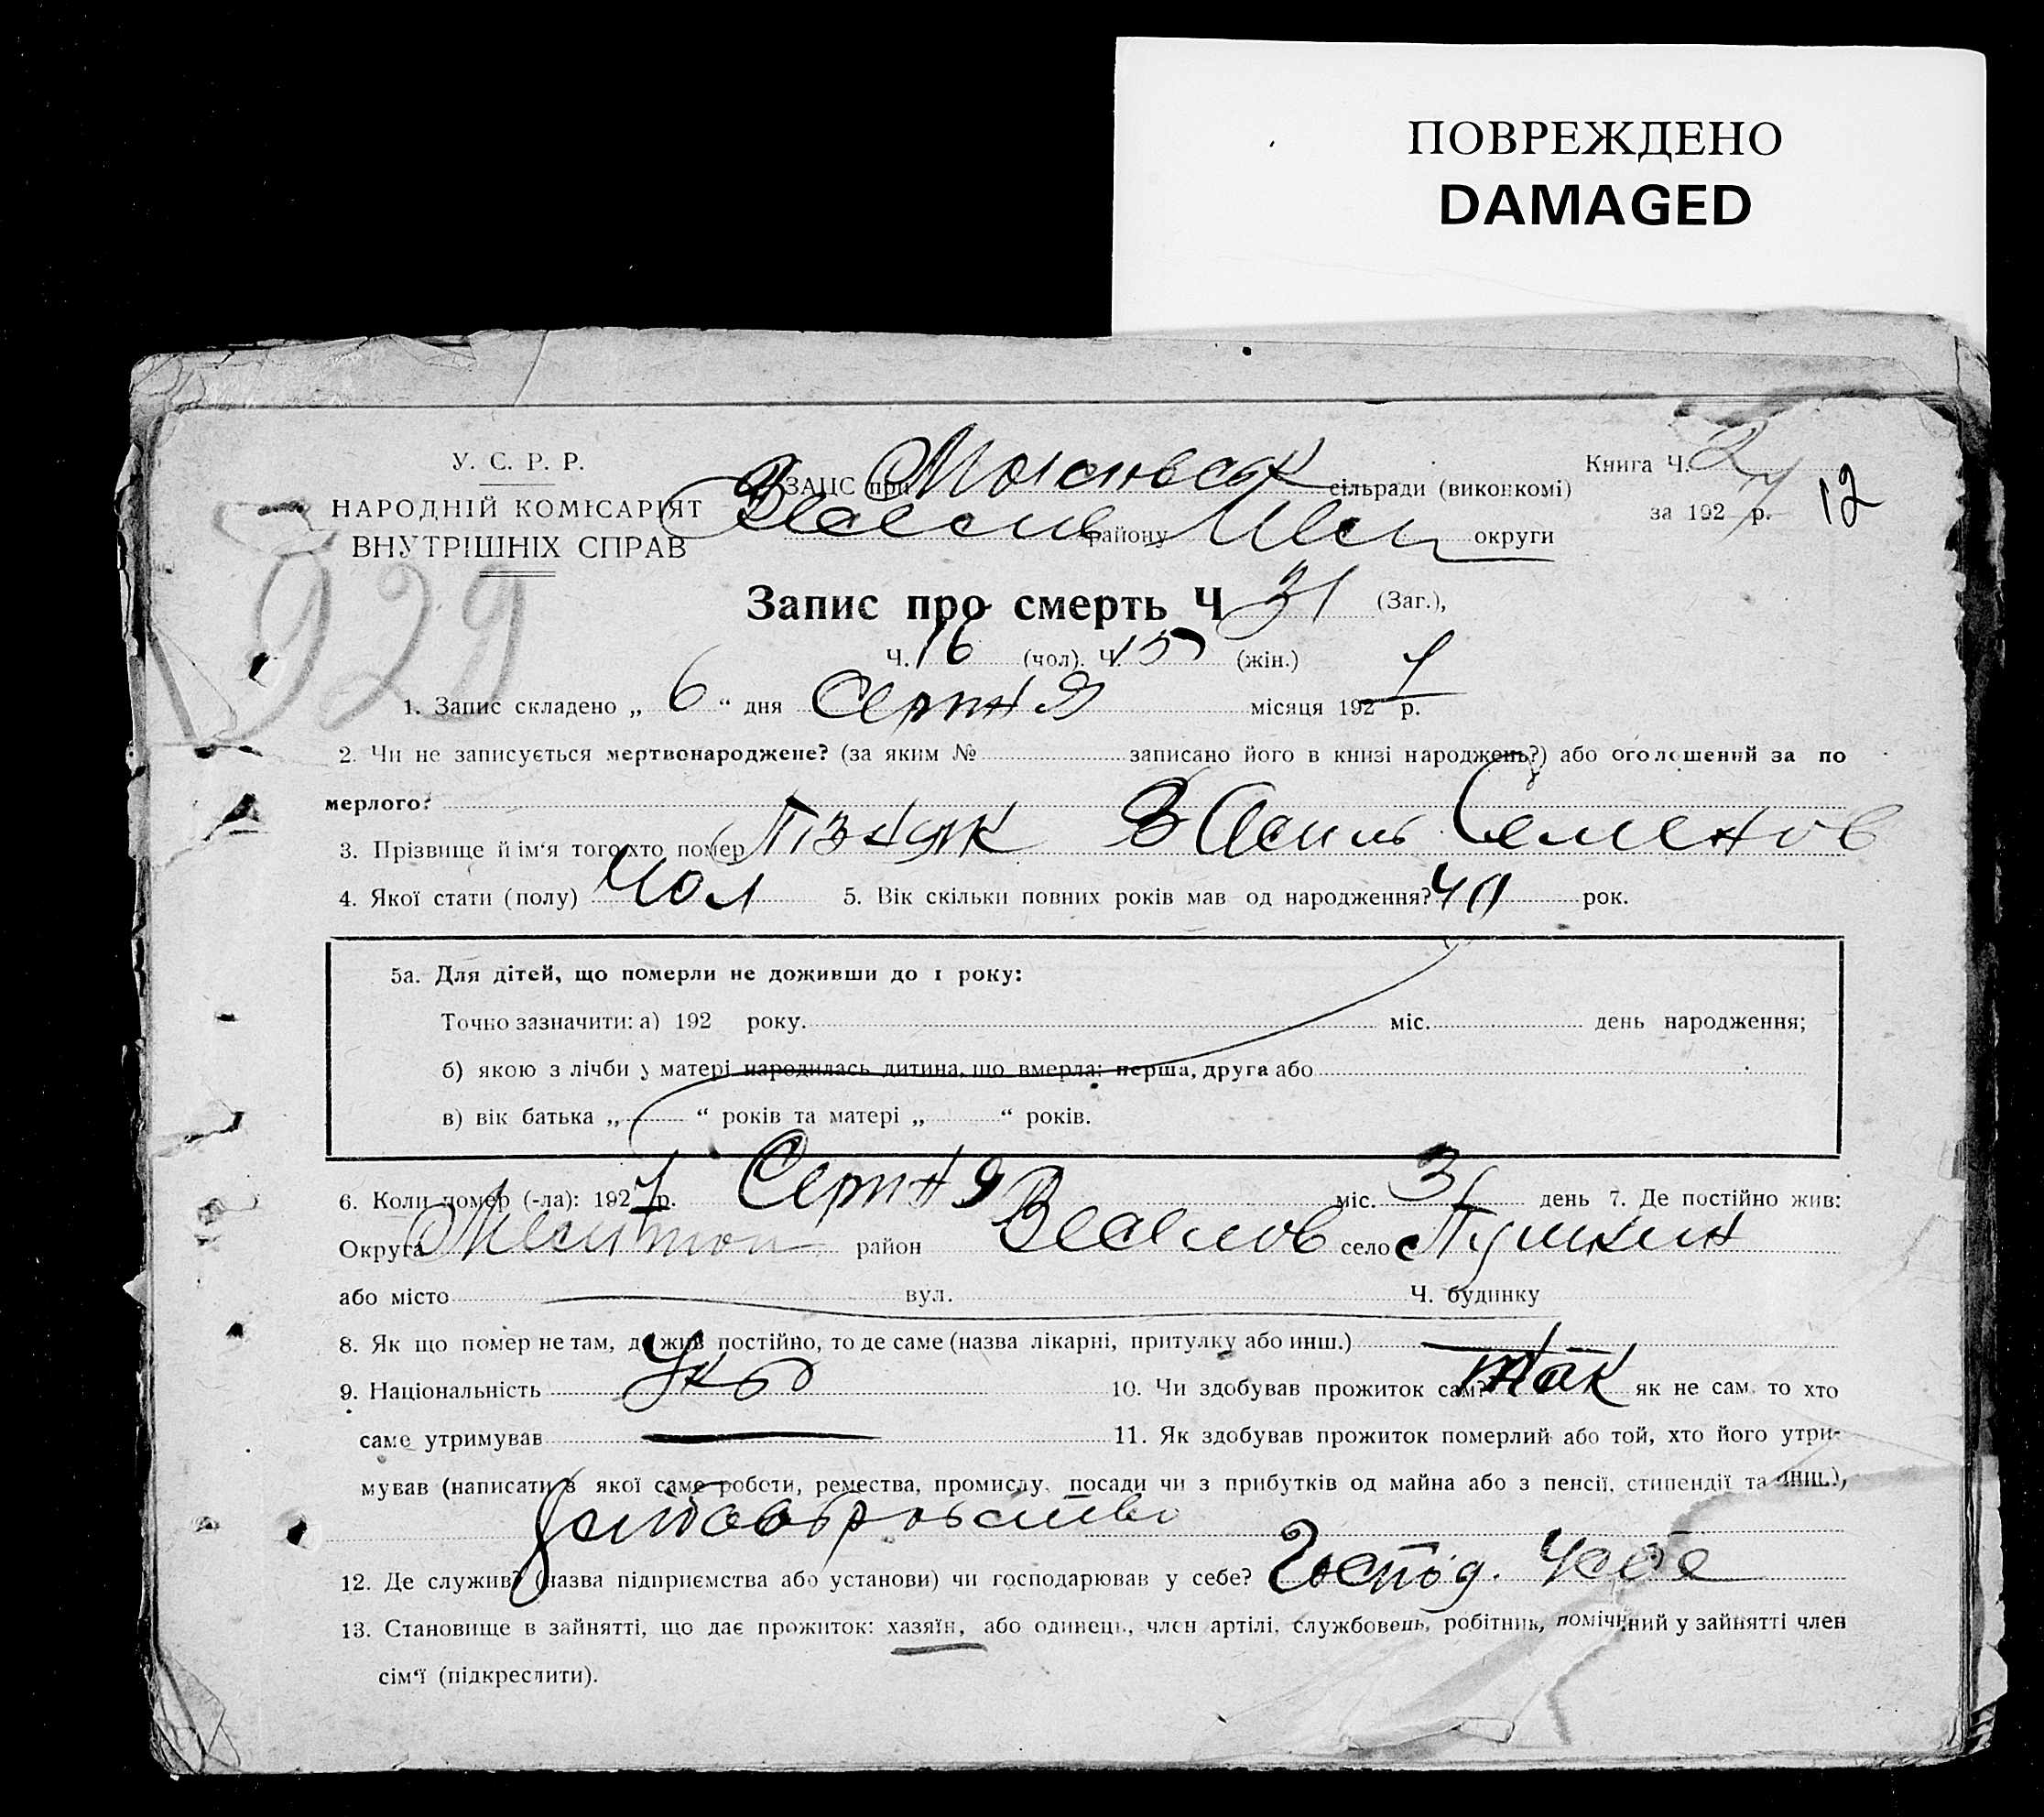 ПОВРЕЖДЕНО
DAMAGED
У. С. Р. Р.
НАРОДНІЙ КОМІСАРІЯТ
ВНУТРІШНІХ СПРАВ
929
ЗАЦС при сільради (виконкомі)
району округи
Книга Ч. 2
за 1927 р.
12
Запис про смерть Ч 31 (Заг.),
Ч. 16 (чол). Ч. 15 (жін.)
1. Запис складено „ 6 “ дня Серпня місяця 1927 р.
2. Чи не записується мертвонароджене? (за яким № записано його в книзі народжень?) або оголошений за по
мерлого?
3. Прізвище й ім‘я того хто помер Пізняк Василь Семенов
4. Якої стати (полу) Чол 5. Вік скільки повних років мав од народження? 40 рок.
5а. Для дітей, що померли не доживши до 1 року:
Точно зазначити: а) 192 року. міс. день народження;
б) якою з лічби у матері народилась дитина, що вмерла: перша, друга або
в) вік батька „ “ років та матері „ “ років.
6. Коли помер (-ла): 1927 р. Серпня міс. 3 день 7. Де постійно жив:
Округа район Веселов село Пушкин
або місто вул. Ч. будинку
8. Як що помер не там, де жив постійно, то де саме (назва лікарні, притулку або инш.)
9. Національність Укр 10. Чи здобував прожиток сам? так як не сам то хто
саме утримував 11. Як здобував прожиток померлий або той, хто його утри-
мував (написати з якої саме роботи, ремества, промислу, посади чи з прибутків од майна або з пенсії, стипендії та инш.),
12. Де служив? (назва підприємства або установи) чи господарював у себе? Господ. у себе
13. Становище в зайнятті, що дає прожиток: хазяїн, або одинець, член артілі, службовець, робітник, помічний у зайнятті член
сім‘ї (підкреслити).